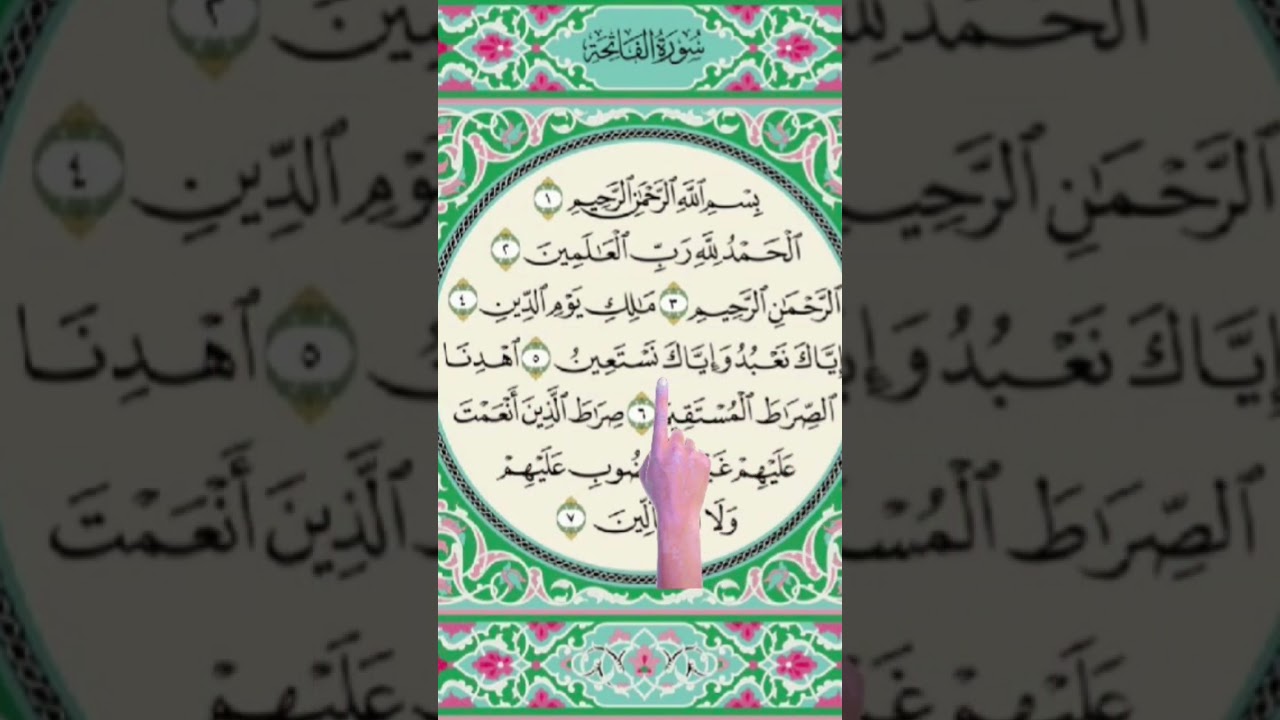 سُورَةُ الفَاتِحَة
بِسْمِ ٱللَّهِ ٱلرَّحْمَٰنِ ٱلرَّحِيمِ ١
ٱلْحَمْدُ لِلَّهِ رَبِّ ٱلْعَٰلَمِينَ ٢
ٱلرَّحْمَٰنِ ٱلرَّحِيمِ ٣ مَٰلِكِ يَوْمِ ٱلدِّينِ ٤
إِيَّاكَ نَعْبُدُ وَإِيَّاكَ نَسْتَعِينُ ٥ ٱهْدِنَا
ٱلصِّرَٰطَ ٦ صِرَٰطَ ٱلَّذِينَ أَنْعَمْتَ
عَلَيْهِمْ عَلَيْهِمْ
وَلَا ٧